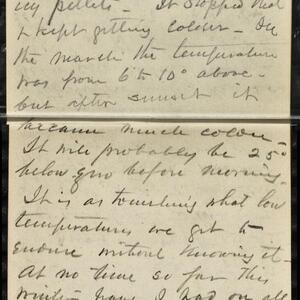 icy pellets - It stopped that
& kept getting colder - In
the march the temperature
was from 6 to 10° above -
but after sunset it
became much colder -
It will probably be 25°
below zero before morning.
It is astonishing what low
temperatures we get to
endure without knowing it -
At no time so far this
winter have I had on all